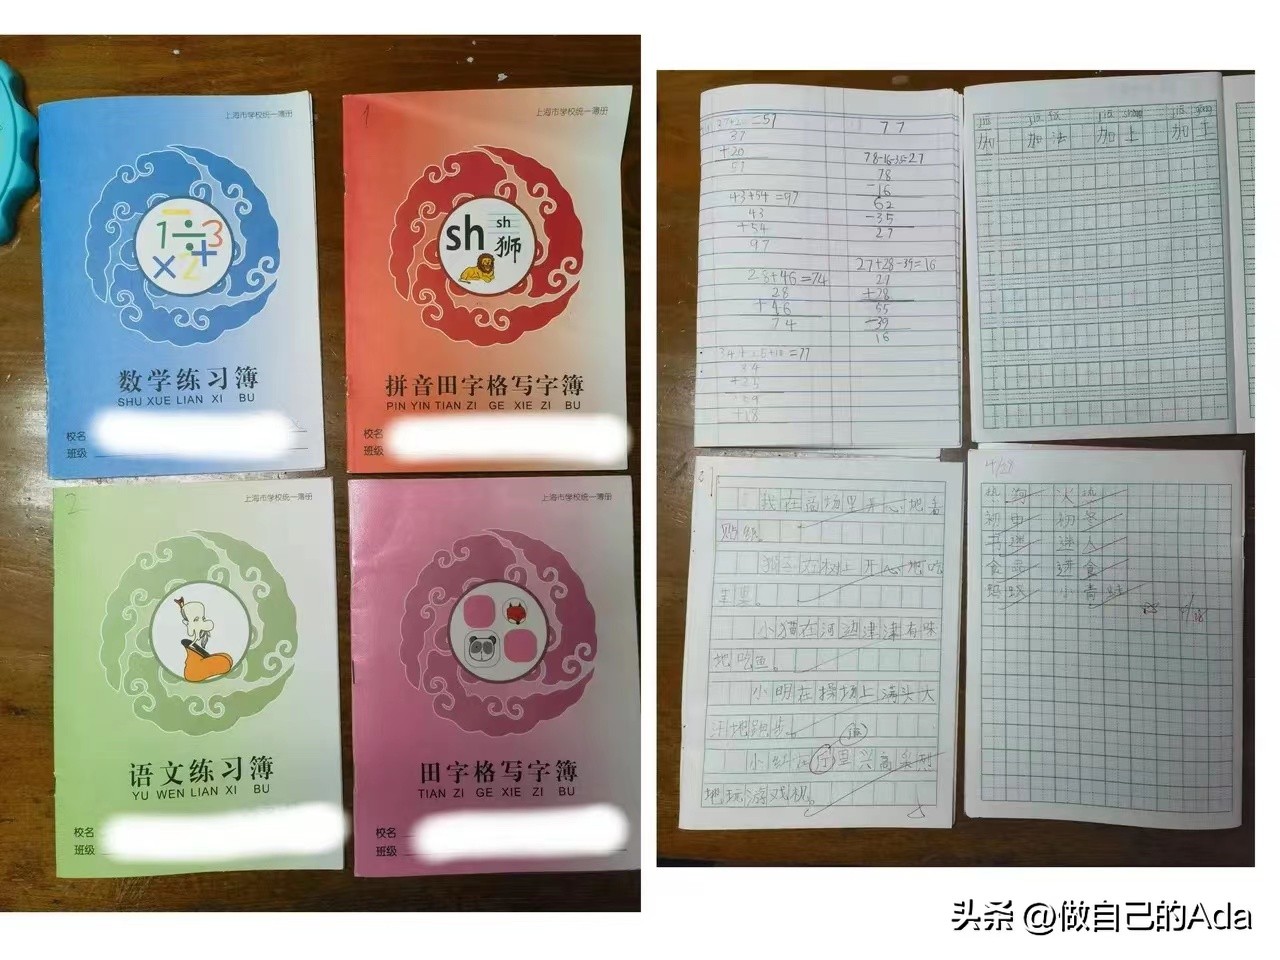 上海市学校统一簿册
数学练习簿
SHU XUE LIAN XI BU
校名
班级
1
上海市学校统一簿册
sh
sh
狮
拼音田字格写字簿
PIN YIN TIAN ZI GE XIE ZI BU
校名
班级
2
上海市学校统一簿册
语文练习簿
YU WEN LIAN XI BU
校名
班级
上海市学校统一簿册
田字格写字簿
TIAN ZI GE XIE ZI BU
校名
班级
=57
37
+20
57
43+54=97
43
+54
97
28+46=74
28
+46
74
=77
34
+18
77
78-16-35=27
78
-16
62
-35
27
27+28-39=16
27
+28
55
-39
16
加 加法 加上 加工
我在商场里开心地看
在树上开心地吃
小猫在河边津津有味
地吃鱼。
小明在操场上满头大
汗地跑步。
里兴高采烈
地玩游戏机。
初中 初冬
迷人
小青蛙
头条 @做自己的Ada